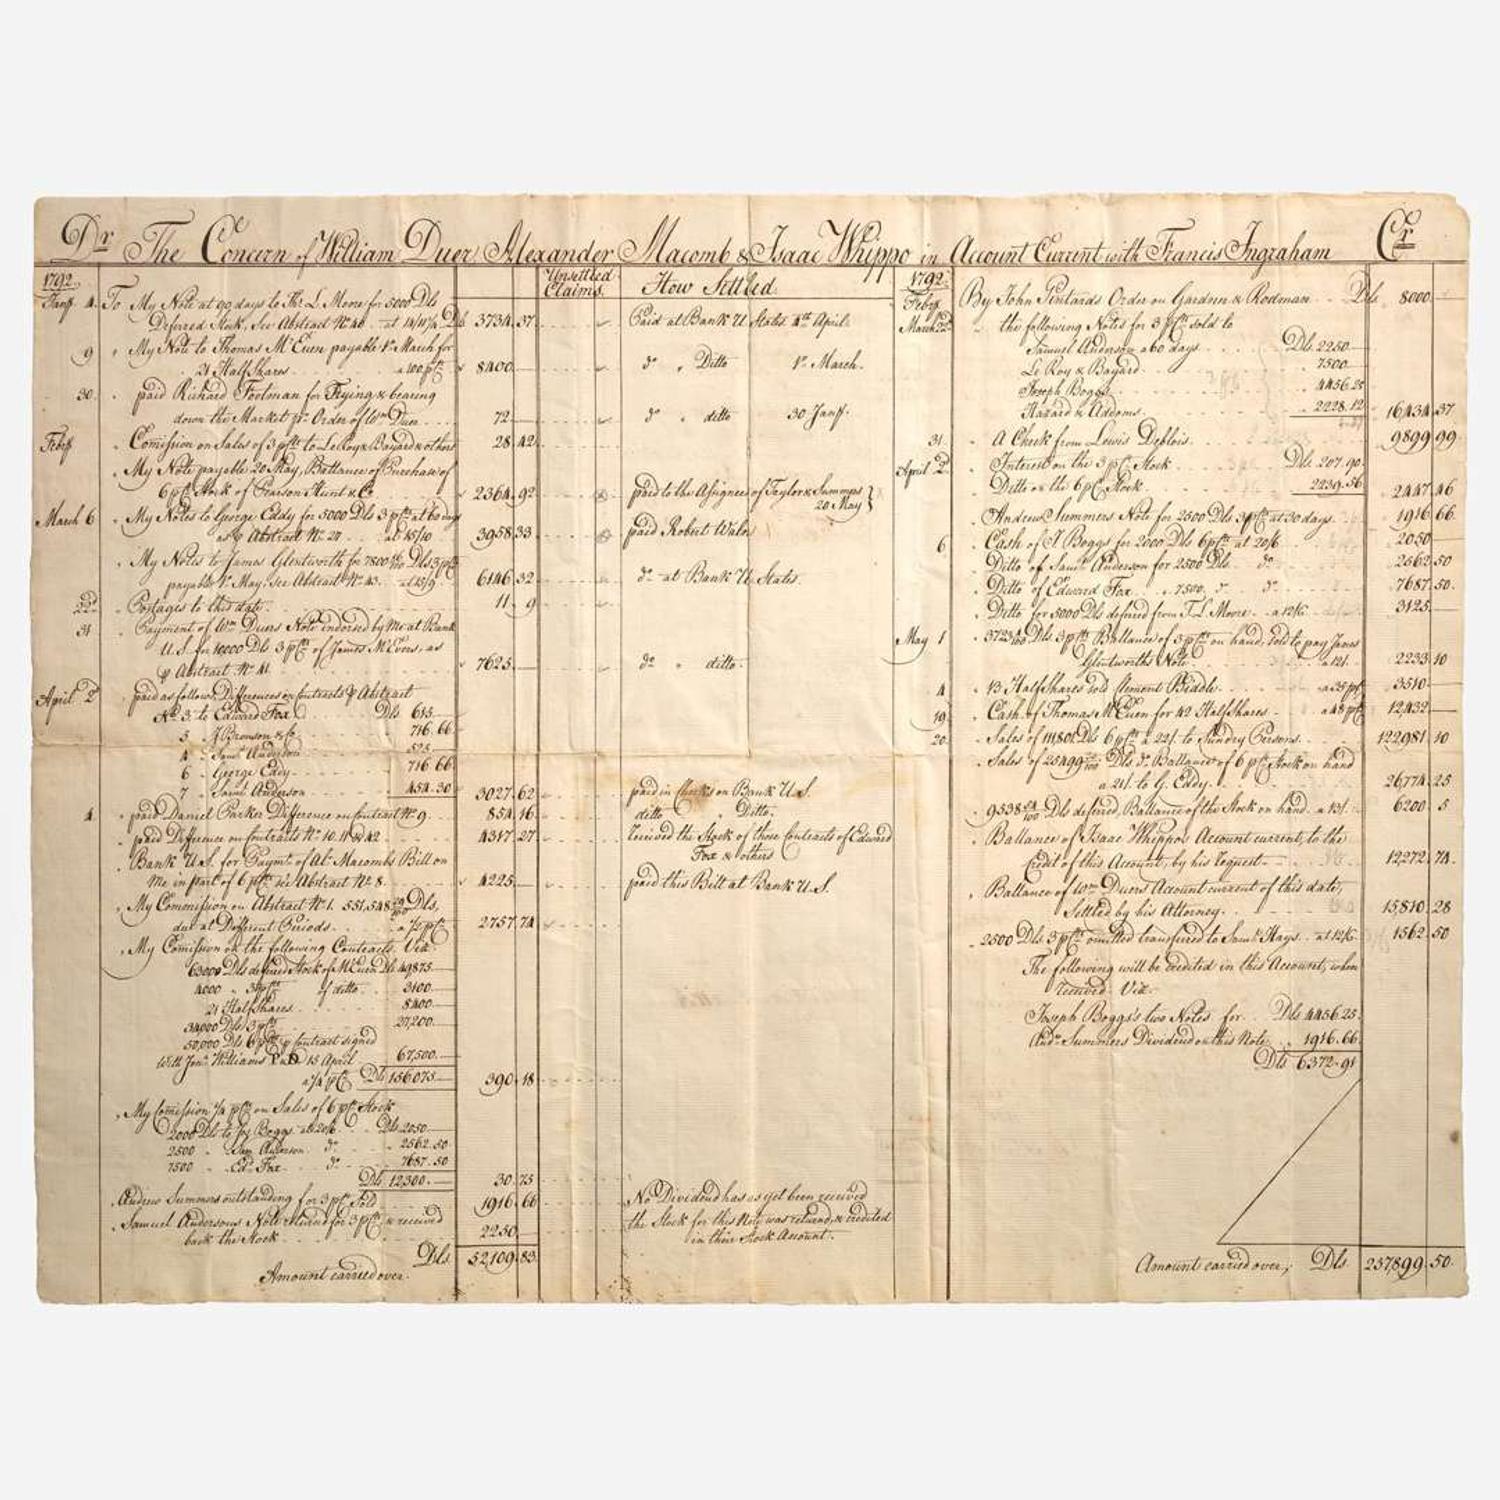 Dr The Concern of William Duer Alexander Macomb & Isaac Whippo in Account Current with Francis Ingraham Cr
1792
Jany 4 To My Note at 90 days to Thos L. Moore for 5000 Dls
Deferred Stock, See Abstract No 40 at 14/11¼ Dls 3734.37
9 My Note to Thomas McEuen payable 1st March for
21 Half Shares a 400 8400
30 paid Richard Footman for Crying & bearing
down the Market pr Order of Wm Duer 72
Feby Comission on Sales of 3 pCts to LeRoy & Bayard & others 28 42
My Note payable 20 May, Ballance of Purchase of
6 pCt Stock of Pearson Hunt & Co 2364.92
March 6 My Notes to George Eddy for 5000 Dls 3 pCts at 60 days
as p Abstract No 27 at 15/10 3958 33
My Notes to James Glentworth for 7800 Dls 3 pCts
payable 1st May, see Abstract No 43 a 15/9 6146.32
22d Postages to this date 11 9
31 Payment of Wm Duers Note endorsed by Me at Bank
U.S. for 10000 Dls 3 pCts of James McEvers, as
p Abstract No 41 7625
April 2d paid as follows, Differences on Contracts p Abstract
No 3 to Edward Fox Dls 615
5 A Bronson & Co 716.66
4 Saml Anderson 525
6 George Eddy 716 66
7 Saml Anderson 454.30 3027.62
4 paid Daniel Parker Difference on Contract No 9 854 16
paid Difference on Contracts No 10. 11 & 42 4317.27
Bank U.S. for Paymt of Alr Macombs Bill on
Me in part of 6 pCts see Abstract No 8 4225
My Commission on Abstract No 1. 551,548 Dls,
due at Different Periods a ½ pCt 2757.74
My Comission on the following Contracts Viz
63000 Dls deferred Stock of McEuen Dls 49875
4000 3 pCts of ditto 3100
21 Half Shares 8400
34000 Dls 3 pCts 27,200
50,000 Dls 6 pCts p Contract signed
With Jonn Williams 15 April 67,500
a ¼ pCt Dls 156075 390.18
My Comission ¼ pCt on Sales of 6 pCt Stock
2000 Dls to Jos Boggs at 20/6 Dls 2050
2500 Sam Anderson do 2562.50
7500 Ed. Fox do 7687.50
Dls 12,300 30.75
Andrew Summers outstanding for 3 pCts Sold 1916.66
Samuel Andersons Note returned for 3 pCts & received
back the Stock 2250
Dls 52,109.83
Amount carried over.
Unsettled
Claims.
How Settled.
Paid at Bank U States 4th April
do Ditto 1st March.
do ditto 30 Jany
paid to the Assignees of Taylor & Summers
20 May
paid Robert Waln
do at Bank U States.
do ditto
paid in Checks on Bank U.S.
ditto Ditto
received the Stock of those Contracts of Edward
Fox & others
paid this Bill at Bank U.S.
No Dividend has as yet been received
the Stock for this Note was returned, & credited
in their Stock Account.
1792
Feby By John Pintards Order on Gardner & Rodman Dls 8000
March 22d the following Notes for 3 pCts sold to
Samuel Anderson a 60 days Dls 2250
Le Roy & Bayard 7500
Joseph Boggs 4456.25
Hazard & Addoms 2228.12 16434 37
31 A Check from Lewis Deblois 9899 99
April 2d Interest on the 3 pCt Stock Dls 207.90
Ditto on the 6 pCt Stock 2239.56 2447 46
Andrew Summers Note for 2500 Dls 3 pCts at 30 days 1916 66
6 Cash of J Boggs for 2000 Dls 6 pCts at 20/6 2050
Ditto of Saml Anderson for 2500 Dls do 2562 50
Ditto of Edward Fox 7500 do do 7687 50
Ditto for 5000 Dls defered from T. L. Moore a 12/6 3125
May 1 3723 Dls 3 pCts Ballance of 3 pCts on hand, sold to pay James
Glentworths Note a 12/ 2233 10
4 13 Half Shares sold Clement Biddle a 35 pCt 3510
19 Cash of Thomas McEuen for 42 Half Shares a 48 pCt 12,432
20 Sales of 111,801 Dls 6 pCts a 22/ to Sundry Persons 122981 10
Sales of 25499 Dls do Ballance of 6 pCt Stock on hand
a 21/ to G. Eddy 26,774 25
9538 Dls defered, Ballance of the Stock on hand a 13/ 6200 5
Ballance of Isaac Whippo's Account current, to the
Credit of this Account, by his request 12,272 74
Ballance of Wm Duers Account current of this date,
Settled by his Attorney 15,810 28
2500 Dls 3 pCts omitted transfered to Saml Hays at 12/6 1562 50
The following will be credited in this Account, when
received. Viz.
Joseph Boggs's two Notes for Dls 4456.25
Andw Summers Dividend on this Note 1916.66
Dls 6372.91
Amount carried over, Dls 257,899 50